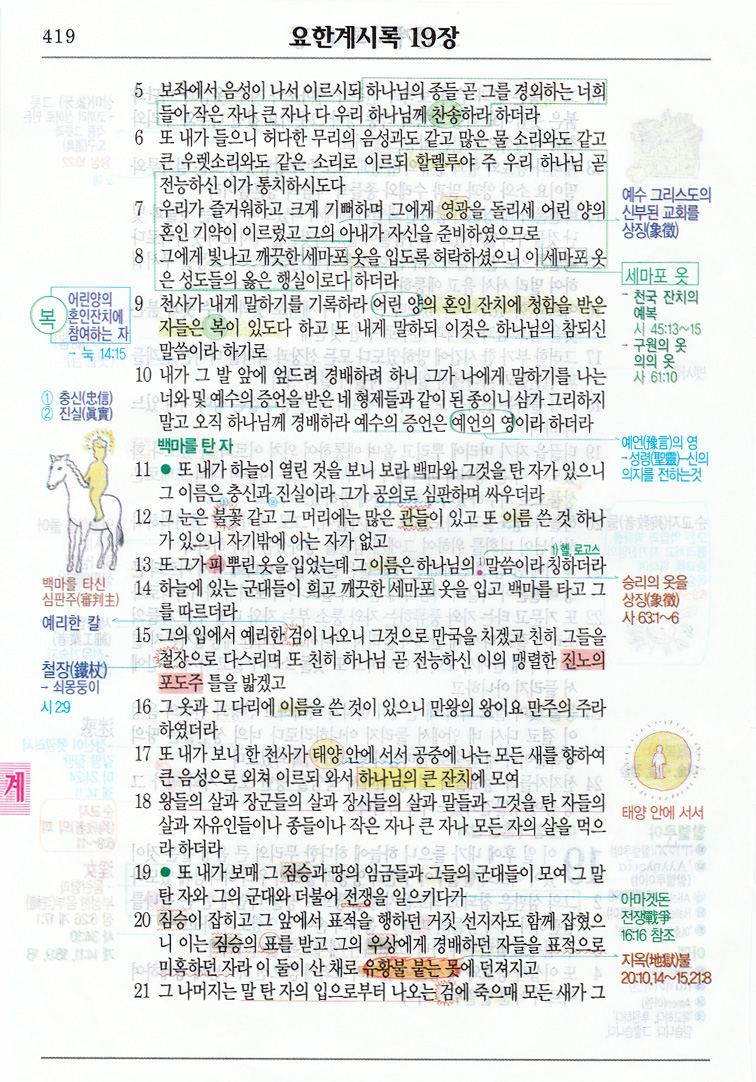 419
요한계시록 19장
5 보좌에서 음성이 나서 이르시되 하나님의 종들 곧 그를 경외하는 너희
들아 작은 자나 큰 자나 다 우리 하나님께 찬송하라 하더라
6 또 내가 들으니 허다한 무리의 음성과도 같고 많은 물 소리와도 같고
큰 우렛소리와도 같은 소리로 이르되 할렐루야 주 우리 하나님 곧
전능하신 이가 통치하시도다
7 우리가 즐거워하고 크게 기뻐하며 그에게 영광을 돌리세 어린 양의
혼인 기약이 이르렀고 그의 아내가 자신을 준비하였으므로
8 그에게 빛나고 깨끗한 세마포 옷을 입도록 허락하셨으니 이 세마포 옷
은 성도들의 옳은 행실이로다 하더라
9 천사가 내게 말하기를 기록하라 어린 양의 혼인 잔치에 청함을 받은
자들은 복이 있도다 하고 또 내게 말하되 이것은 하나님의 참되신
말씀이라 하기로
10 내가 그 발 앞에 엎드려 경배하려 하니 그가 나에게 말하기를 나는
너와 및 예수의 증언을 받은 네 형제들과 같이 된 종이니 삼가 그리하지
말고 오직 하나님께 경배하라 예수의 증언은 예언의 영이라 하더라
백마를 탄 자
11 ● 또 내가 하늘이 열린 것을 보니 보라 백마와 그것을 탄 자가 있으니
그 이름은 충신과 진실이라 그가 공의로 심판하며 싸우더라
12 그 눈은 불꽃 같고 그 머리에는 많은 관들이 있고 또 이름 쓴 것 하나
가 있으니 자기밖에 아는 자가 없고
1) 헬, 로고스
13 또 그가 피 뿌린 옷을 입었는데 그 이름은 하나님의 1)말씀이라 칭하더라
14 하늘에 있는 군대들이 희고 깨끗한 세마포 옷을 입고 백마를 타고 그
를 따르더라
15 그의 입에서 예리한 검이 나오니 그것으로 만국을 치겠고 친히 그들을
철장으로 다스리며 또 친히 하나님 곧 전능하신 이의 맹렬한 진노의
포도주 틀을 밟겠고
16 그 옷과 그 다리에 이름을 쓴 것이 있으니 만왕의 왕이요 만주의 주라
하였더라
17 또 내가 보니 한 천사가 태양 안에 서서 공중에 나는 모든 새를 향하여
큰 음성으로 외쳐 이르되 와서 하나님의 큰 잔치에 모여
18 왕들의 살과 장군들의 살과 장사들의 살과 말들과 그것을 탄 자들의
살과 자유인들이나 종들이나 작은 자나 큰 자나 모든 자의 살을 먹으
라 하더라
19 ● 또 내가 보매 그 짐승과 땅의 임금들과 그들의 군대들이 모여 그 말
탄 자와 그의 군대와 더불어 전쟁을 일으키다가
20 짐승이 잡히고 그 앞에서 표적을 행하던 거짓 선지자도 함께 잡혔으
니 이는 짐승의 표를 받고 그의 우상에게 경배하던 자들을 표적으로
미혹하던 자라 이 둘이 산 채로 유황불 붙는 못에 던져지고
21 그 나머지는 말 탄 자의 입으로부터 나오는 검에 죽으매 모든 새가 그
복
어린양의
혼인잔치에
참여하는 자
→ 눅 14:15
① 충신(忠信)
② 진실(眞實)
백마를 타신
심판주(審判主)
예리한 칼
철장(鐵杖)
→ 쇠몽둥이
시 2:9
계
예수 그리스도의
신부된 교회를
상징(象徵)
세마포 옷
→ 천국 잔치의
예복
시 45:13~15
→ 구원의 옷
의의 옷
사 61:10
예언(豫言)의 영
→성령(聖靈)–신의
의지를 전하는것
승리의 옷을
상징(象徵)
사 63:1~6
태양 안에 서서
아마겟돈
전쟁戰爭
16:16 참조
지옥(地獄)불
20:10,14~15,21:8